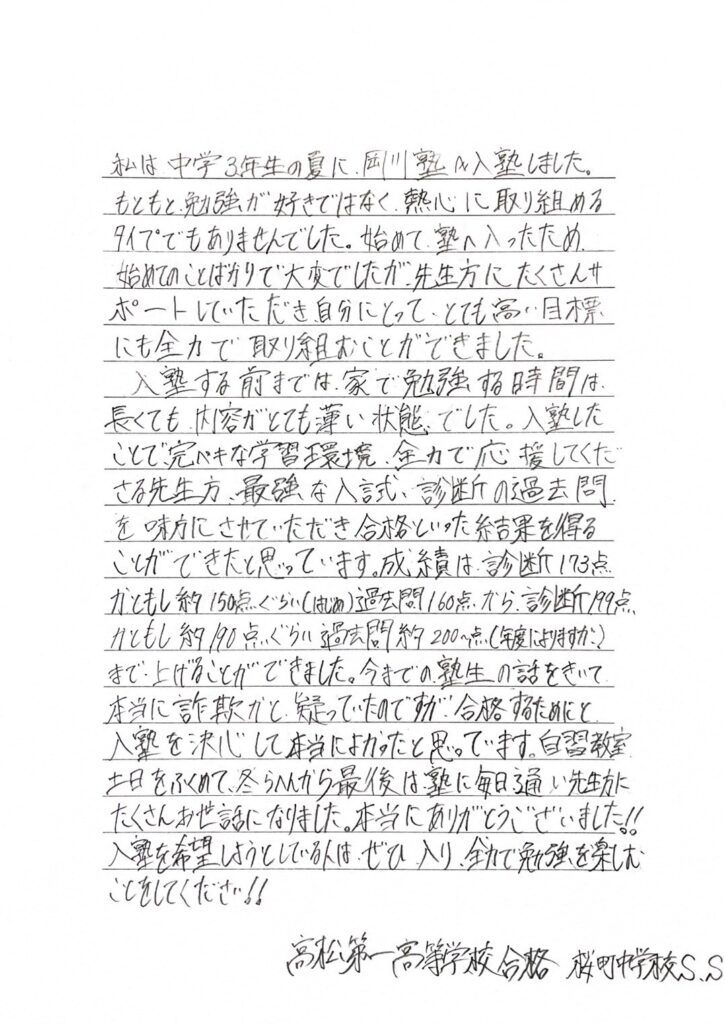 私は、中学3年生の夏に、岡川塾へ入塾しました。
もともと、勉強が好きではなく、熱心に取り組める
タイプでもありませんでした。始めて塾へ入ったため、
始めてのことばかりで大変でしたが、先生方にたくさんサ
ポートしていただき、自分にとって、とても高い目標
にも全力で取り組むことができました。
入塾する前までは、家で勉強する時間は、
長くても、内容がとても薄い状態でした。入塾した
ことで、完ペキな学習環境、全力で応援してくだ
さる先生方、最強な入試、診断の過去問
を味方にさせていただき合格といった結果を得る
ことができたと思っています。成績は、診断173点
かともし約150点ぐらい(はじめ)過去問160点から、診断199点、
かともし約190点ぐらい過去問約200~点(年度によりますが)
まで上げることができました。今までの塾生の話をきいて、
本当に詐欺かと、疑っていたのですが、合格するためにと、
入塾を決心して本当によかったと思っています。自習教室、
土日をふくめて、冬らへんから最後は塾に毎日通い先生方に
たくさんお世話になりました。本当にありがとうございました!!
入塾を希望しようとしている人は、ぜひ入り、全力で勉強を楽しむ
ことをしてくださ!!
高松第一高等学校合格 桜町中学校S.S